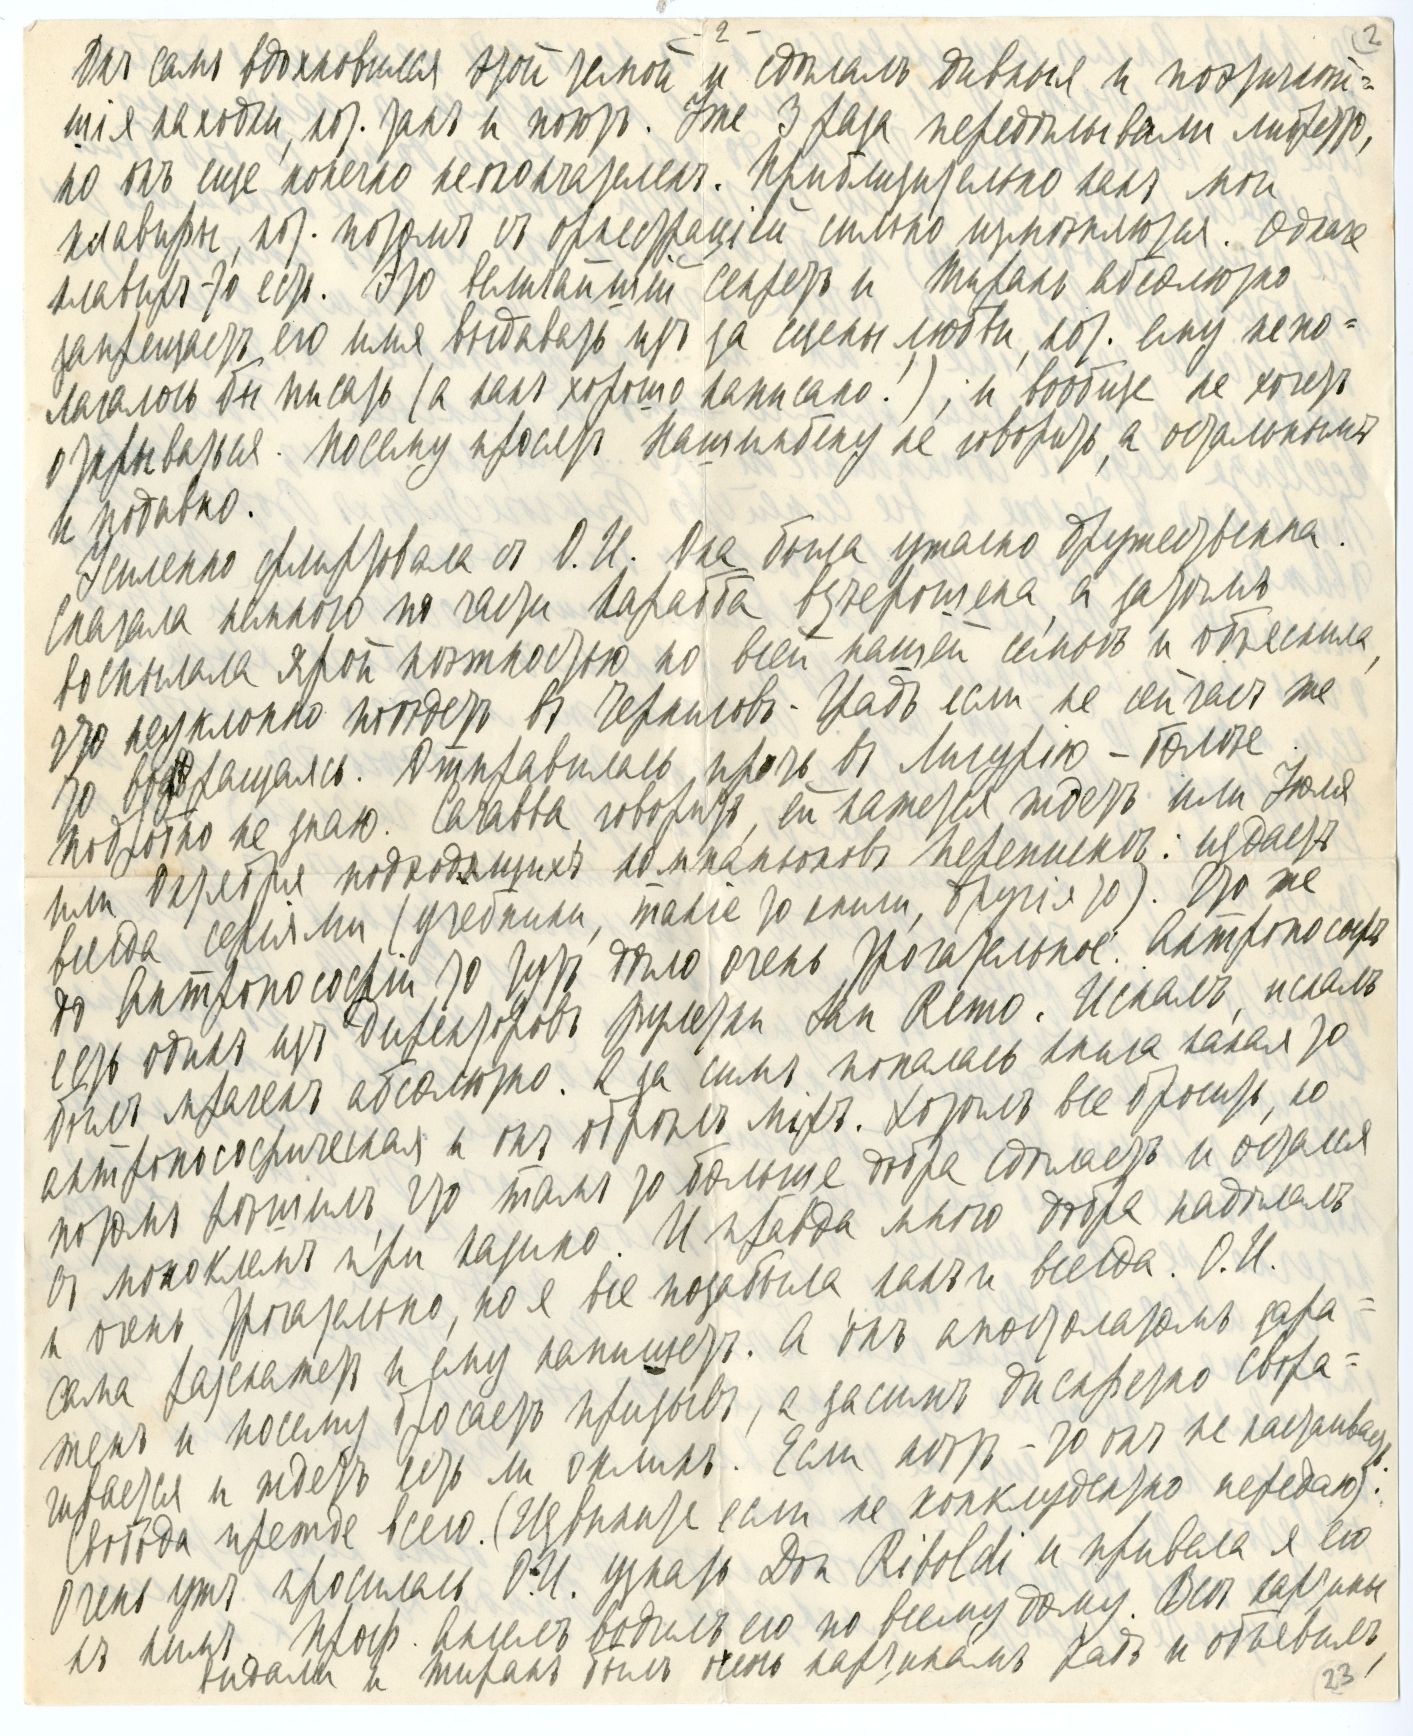 - 2 -
2
Онъ самъ вдохновился этой темой и сдѣлалъ дивныя и поэтичнѣй=
шія находки, кот. танъ и поютъ. Уже 3 раза передѣлывали либретто,
но онъ еще конечно неокончателенъ. Приблизительно какъ мои
клавиры, кот. потомъ съ оркестраціей сильно измѣняются. Однако
клавиръ-то есть. Это величайшій секретъ и Тиранъ абсолютно
запрещаетъ его имя выдавать изъ за сцены любви, кот. ему непо=
лагалось бы писать (а какъ хорошо написано!), и вообще не хочетъ
открываться. Посему проситъ не говорить, а остальнымъ
и подавно.
Усиленно флиртовала съ О.И. Она была ужасно дружественна.
Сказала немного по части Карабба взъерошена, а затѣмъ
воспылала ярой нѣжностью ко всей нашей семьѣ и объяснила,
что неуклонно поѣдетъ въ Черниговъ-Градъ если не сейчасъ же
то возвращаясь. Отправилась прочь въ Лигурію - болѣе
подробно не знаю. говоритъ, ей кажется ждетъ или Іюля
или Октября подходящихъ компаньоновъ перепискѣ: издаетъ
всегда серіями (учебники, такіе то книги, другія то). Что же
до Антропософіи то тутъ дѣло очень трогательное. Антропософъ
есть одинъ изъ Директоровъ рулетки San Remo. Искалъ, искалъ
былъ мраченъ абсолютно. А за симъ попалась книга какая то
антропософическая и онъ обрѣлъ міръ. Хотѣлъ все бросить, но
потомъ рѣшилъ что тамъ то больше добра сдѣлаетъ и остался
съ моноклемъ при казино. И правда много добра надѣлалъ
и очень трогательно, но я все позабыла какъ и всегда. О.И.
сама разскажетъ и ему напишетъ. А онъ апостолатомъ зара=
женъ и посему бросаетъ призывъ, а засимъ дискретно свора=
чивается и ждетъ есть ли откликъ. Если нѣтъ - то онъ не настаиваетъ:
Свобода прежде всего. (Извините если не конклудентно передаю).
Очень ужъ просилась О.И. узнать Don Riboldi и привела я его
къ нимъ. Проф. Ангелъ водилъ его по всему дому. Всѣ картины
видали и тиранъ былъ очень картинамъ радъ и объявилъ,
23